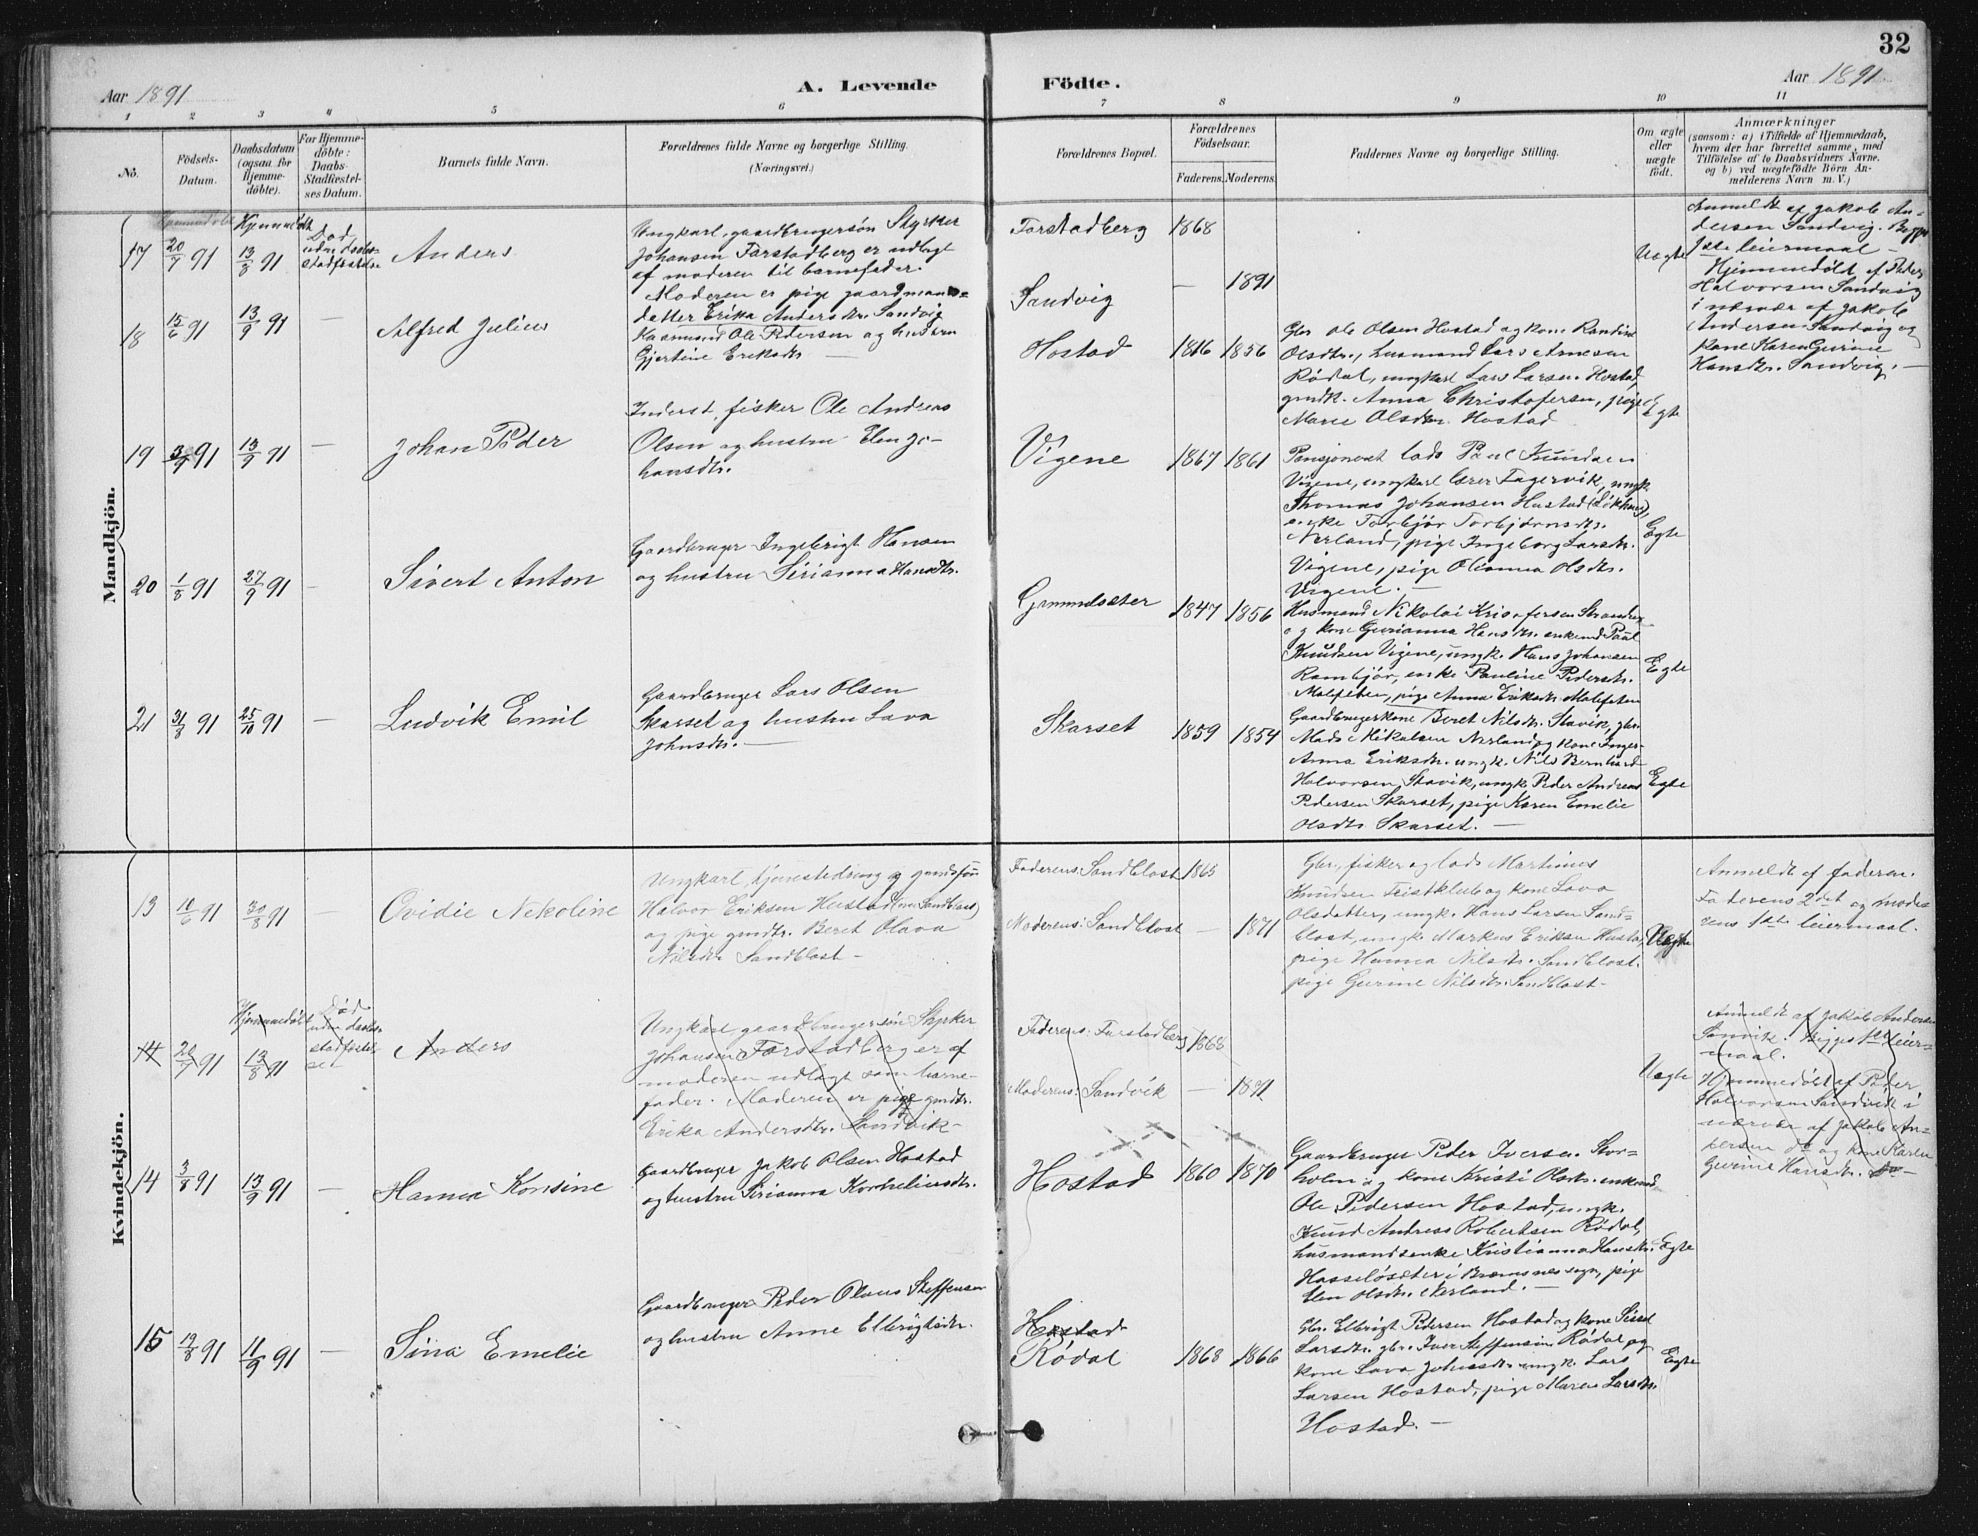 32
Aar 1891
A. Levende
Födte.
Aar 1891
1 2 3 4 5 6 7 8 9 10 11
No.
Födsels-
Datum.
Daabsdatum
(ogsaa for
Hjemme-
döbte).
For Hjemme-
döbte:
Daabs-
Stadfæstel-
ses Datum.
Barnets fulde Navn.
Forældrenes fulde Navne og borgerlige Stilling.
(Næringsvei.)
Forældrenes Bopæl.
Forældrenes
Födselsaar.
Faderens. Moderens.
Faddernes Navne og borgerlige Stilling.
Om ægte
eller
uægte
födt.
Anmærkninger
(saasom: a) i Tilfælde af Hjemmedaab,
hvem der har forrettet samme, med
Tilföielse af to Daabsvidners Navne.
og b) ved uægtefödte Börn An-
melderens Navn m. V.)
Mandkjön.
17
20/7 91
Hjemmedöbt
13/8 91
Död
uden daabs-
stadfæstelse
Anders
Ungkarl, gaardbrugersön Styrker
Johansen Farstadberg er udlagt
af moderen til barnefader.
Moderen er pige gaardmands-
datter Erika Andersdtr. Sandvig
Farstadberg 1868
Sandvig — 1891
Uegte
Anmeldt af Jakob An-
dersen Sandvig. Begges
1ste leiermaal —
Hjemmedöbt af Peder
Halvorsen Sandvig
i nærvær af Jakob
Andersen Sandvig og
kone Karen Gurine
Hansdtr. Sandvig. —
18
15/6 91
13/9 91
—
Alfred Julius
Husmand Ole Pedersen og hustru
Gjertine Eriksdtr. —
Hostad 1846 1856
Gbr. Ole Olsen Hostad og kone Randine
Olsdtr., husmand Lars Arnesen
Rödal, ungkarl Lars Larsen Hostad,
gmdk. Anna Christofersen, pige
Marie Olsdtr. Hostad
Egte
19
3/9 91
13/9 91
—
Johan Peder
Inderst, fisker Ole Andreas
Olsen og hustru Elen Jo-
hansdtr.
Vigene 1867 1861
Pensjoneret lods Paul Knudsen
Vigene, ungkarl Fagervik, ungk.
Thomas Johansen Hustad
enke Torbjör Torbjörnsdtr.
Nerland, pige Ingeborg Larsdtr.
Vigene, pige Olianna Olsdtr.
Vigene. —
Egte
20
1/8 91
27/9 91
—
Sivert Anton
Gaardbruger Ingebrigt Hansen
og hustru Sirianna Hansdtr.
Grimmelsæter 1847 1856
Husmand Nikolai Kristofersen
og kone Gurianna Hansdtr. enkemd. Paul
Knudsen Vigene, ungk. Hans Johansen
enke Pauline Pedersdtr.
Malefeten, pige Anna Eriksdtr. Malefeten
Egte
21
31/8 91
25/10 91
—
Ludvik Emil
Gaardbruger Lars Olsen
Skarset og hustru Lava
Johnsdtr. —
Skarset 1859 1854
Gaardbrugerkone Beret Nilsdtr. Stavik, gbr.
Mads Mikalsen Nerland og kone Inger-
Anna Eriksdtr. ungk. Nils Bernhard
Halvorsen Stavik, ungk. Peder Andreas
Pedersen Skarset, pige Karen Emelie
Olsdtr. Skarset. —
Egte
Kvindekjön.
13
11/6 91
30/8 91
—
Ovidie Nekoline
Ungkarl, tjenestedreng og gmdsön
Halvor Eriksen Hustad
og pige gmdtr. Beret Olava
Nilsdtr. Sandblost —
Faderens: Sandblost 1865
Moderens: Sandblost — 1871
Gbr., fisker og lods Martinus
Knudsen Teistklub og kone Lava
Olsdatter, ungk. Hans Larsen Sand-
blost, ungk. Markus Eriksen Hustad,
pige Hanna Nilsdtr. Sandblost.
pige Gurine Nilsdtr. Sandblost —
Uegte
Anmeldt af faderen.
Faderens 2det og mode-
rens 1ste leiermaal.
14
20/7 91
Hjemmedöbt
13/8 91
Död
uden daabs-
stadfæstel-
set
Anders
Ungkarl, gaardbrugersön Styrker
Johansen Farstadberg er af
moderen udlagt som barne-
fader. Moderen er pige gmdtr.
Erika Andersdtr. Sandvik —
Faderens: Farstadberg 1868
Moderens: Sandvik — 1891
Uegte
Anmeldt af Jakob Andersen
Sandvik. Begges 1ste leier-
maal.
Hjemmedöbt af Peder
Halvorsen Sandvik i
nærvær af Jakob An-
dersen og kone Karen
Gurine Hansdtr. —
14
3/8 91
13/9 91
—
Hanna Konsine
Gaardbruger Jakob Olsen Hostad
og hustru Sirianna Korneliusdtr.
Hostad 1860 1870
Gaardbruger Peder Iversen Stor-
holm og kone Kristi Olsdtr. enkemd.
Ole Pedersen Hostad, ungk.
Knud Andreas Robertsen Rödal,
husmandsenke Kristianna Hansdtr.
Hasselösæter i Bremsnes sogn, pige
Elen Olsdtr. Nerland. —
Egte
15
19/8 91
11/9 91
—
Sina Emelie
Gaardbruger Peder Olaus Steffensen
og hustru Anne Elbrigtsdtr.
Hostad
Rödal 1868 1866
Gbr. Elbrigt Pedersen Hostad og kone Sissel
Larsdtr. gbr. Iver Steffensen Rödal og
kone Lava Johnsdtr. ungk. Lars
Larsen Hostad, pige Maren Larsdtr.
Hostad. —
Egte